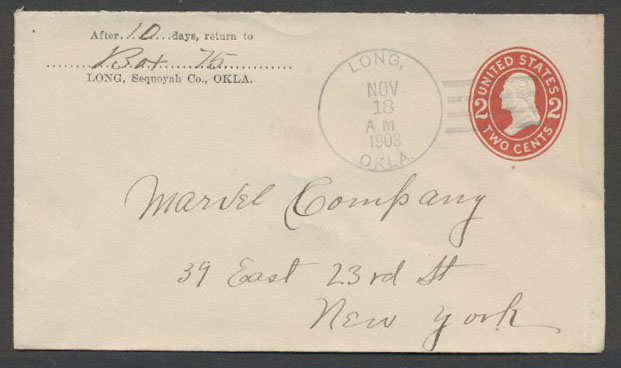 After 10 days, return to
Box
LONG, Sequoyah Co., OKLA.
LONG,
NOV
18
A M
1908
OKLA.
UNITED STATES
2 2
TWO CENTS
Marvel Company
39 East 23rd St
New York